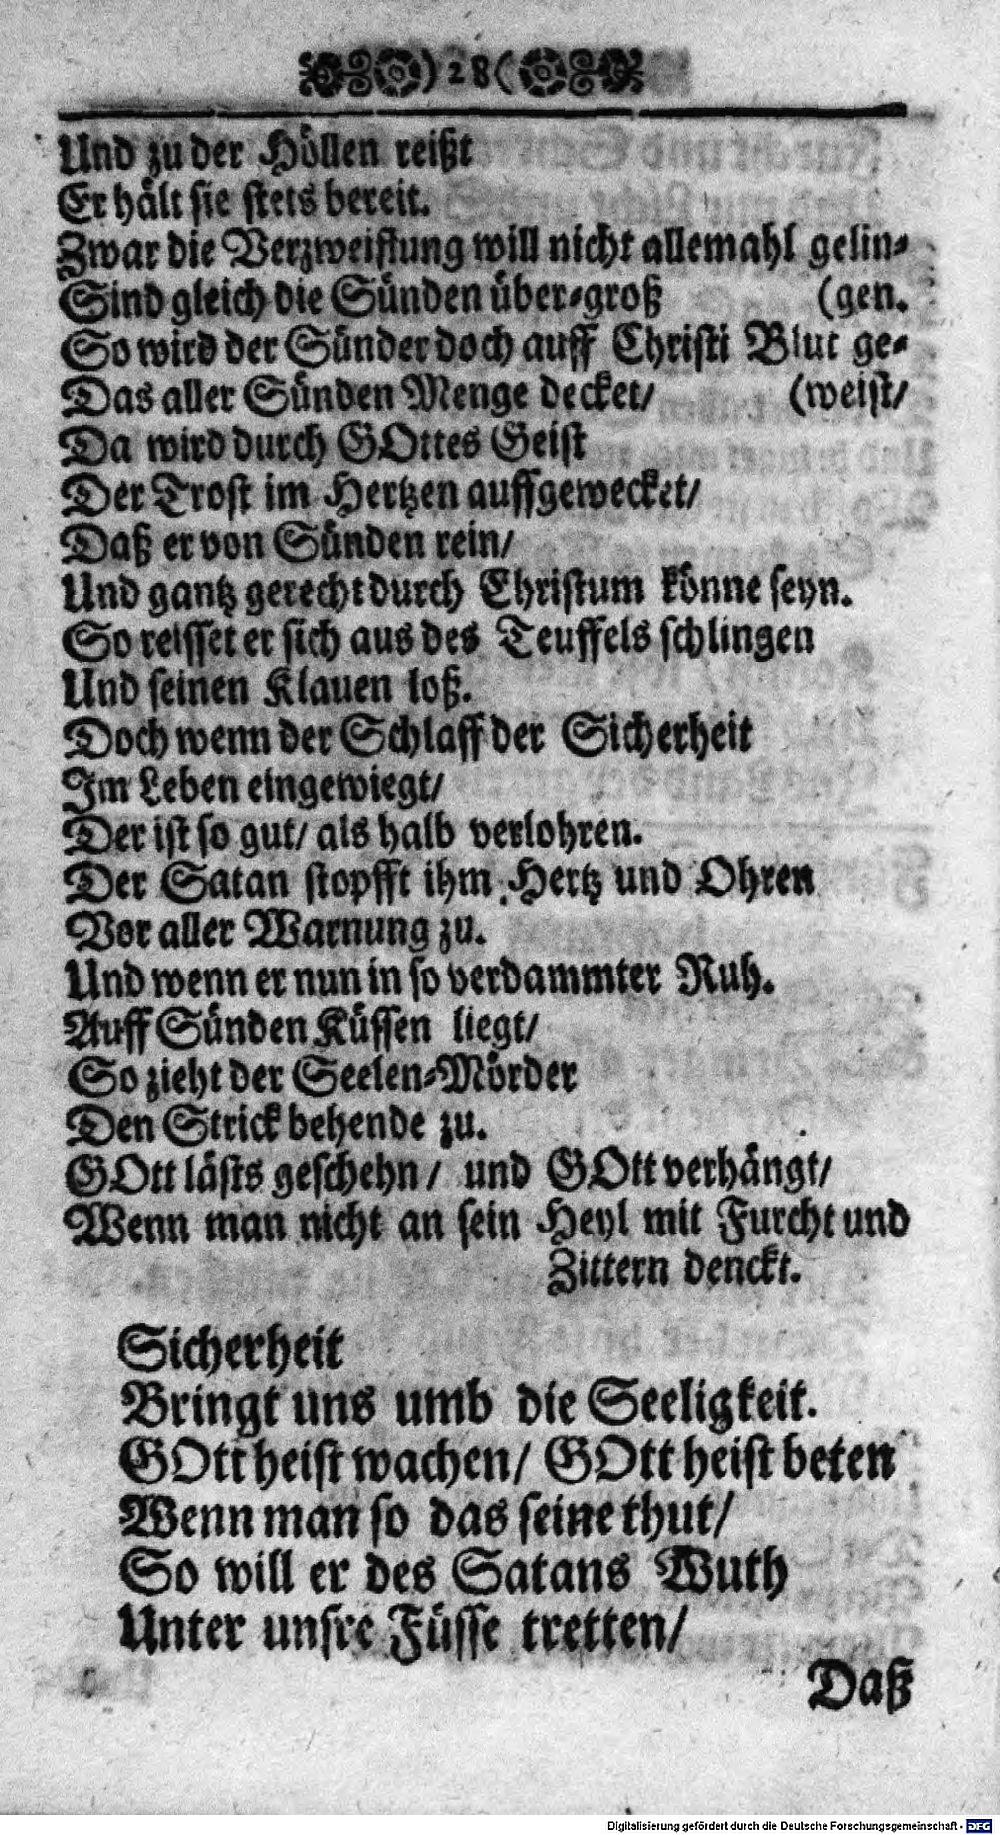 )28(
Und zu der Höllen reißt
Er hält sie stets bereit.
Zwar die Verzweiflung will nicht allemahl gelin-
Sind gleich die Sünden über-groß (gen.
So wird der Sünder doch auff Christi Blut ge-
Das aller Sünden Menge decket/ (weist/
Da wird durch GOttes Geist
Der Trost im Hertzen auffgewecket/
Daß er von Sünden rein/
Und gantz gerecht durch Christum könne seyn.
So reisset er sich aus des Teuffels schlingen
Und seinen Klauen loß.
Doch wenn der Schlaff der Sicherheit
Im Leben eingewiegt/
Der ist so gut/ als halb verlohren.
Der Satan stopfft ihm Hertz und Ohren
Vor aller Warnung zu.
Und wenn er nun in so verdammter Ruh.
Auff Sünden Küssen liegt/
So zieht der Seelen-Mörder
Den Strick behende zu.
GOtt lästs geschehn/ und GOtt verhängt/
Wenn man nicht an sein Heyl mit Furcht und
Zittern denckt.
Sicherheit
Bringt uns umb die Seeligkeit.
GOtt heist wachen/ GOtt heist beten
Wenn man so das seine thut/
So will er des Satans Wuth
Unter unsre Füsse tretten/
Daß
Digitalisierung gefördert durch die Deutsche Forschungsgemeinschaft - DFG